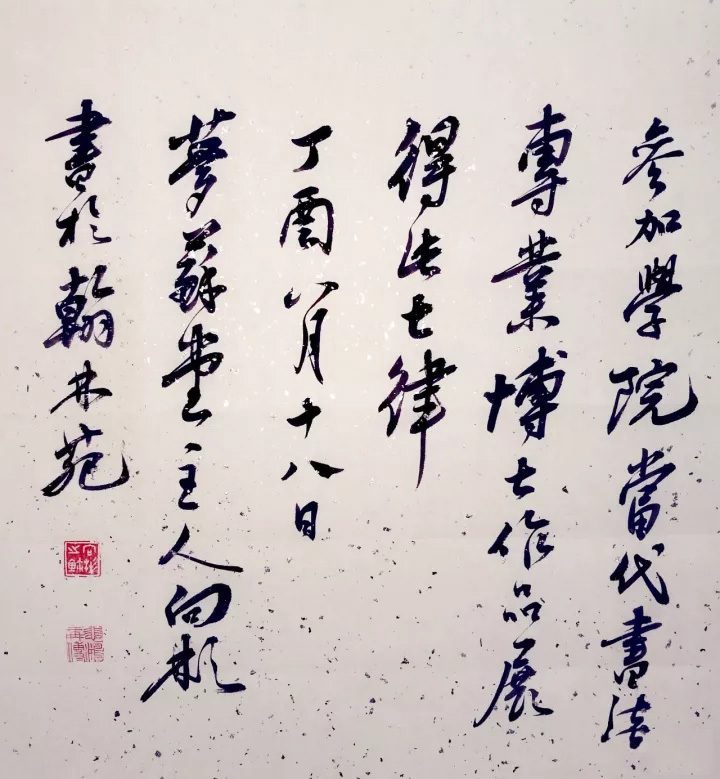 參加學院當代書法
專業博士作品展
得此七律
丁酉八月十八日
夢蘇堂主人向彬
書於翰林苑